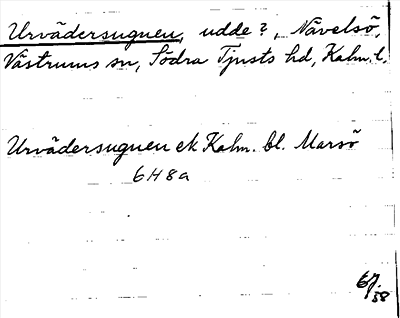 Urvädersugnen, udde?, Nävelsö,
Västrums sn, Södra Tjusts hd, Kalm. l.
Urvädersugnen ek Kalm. bl. Marsö
6H8a